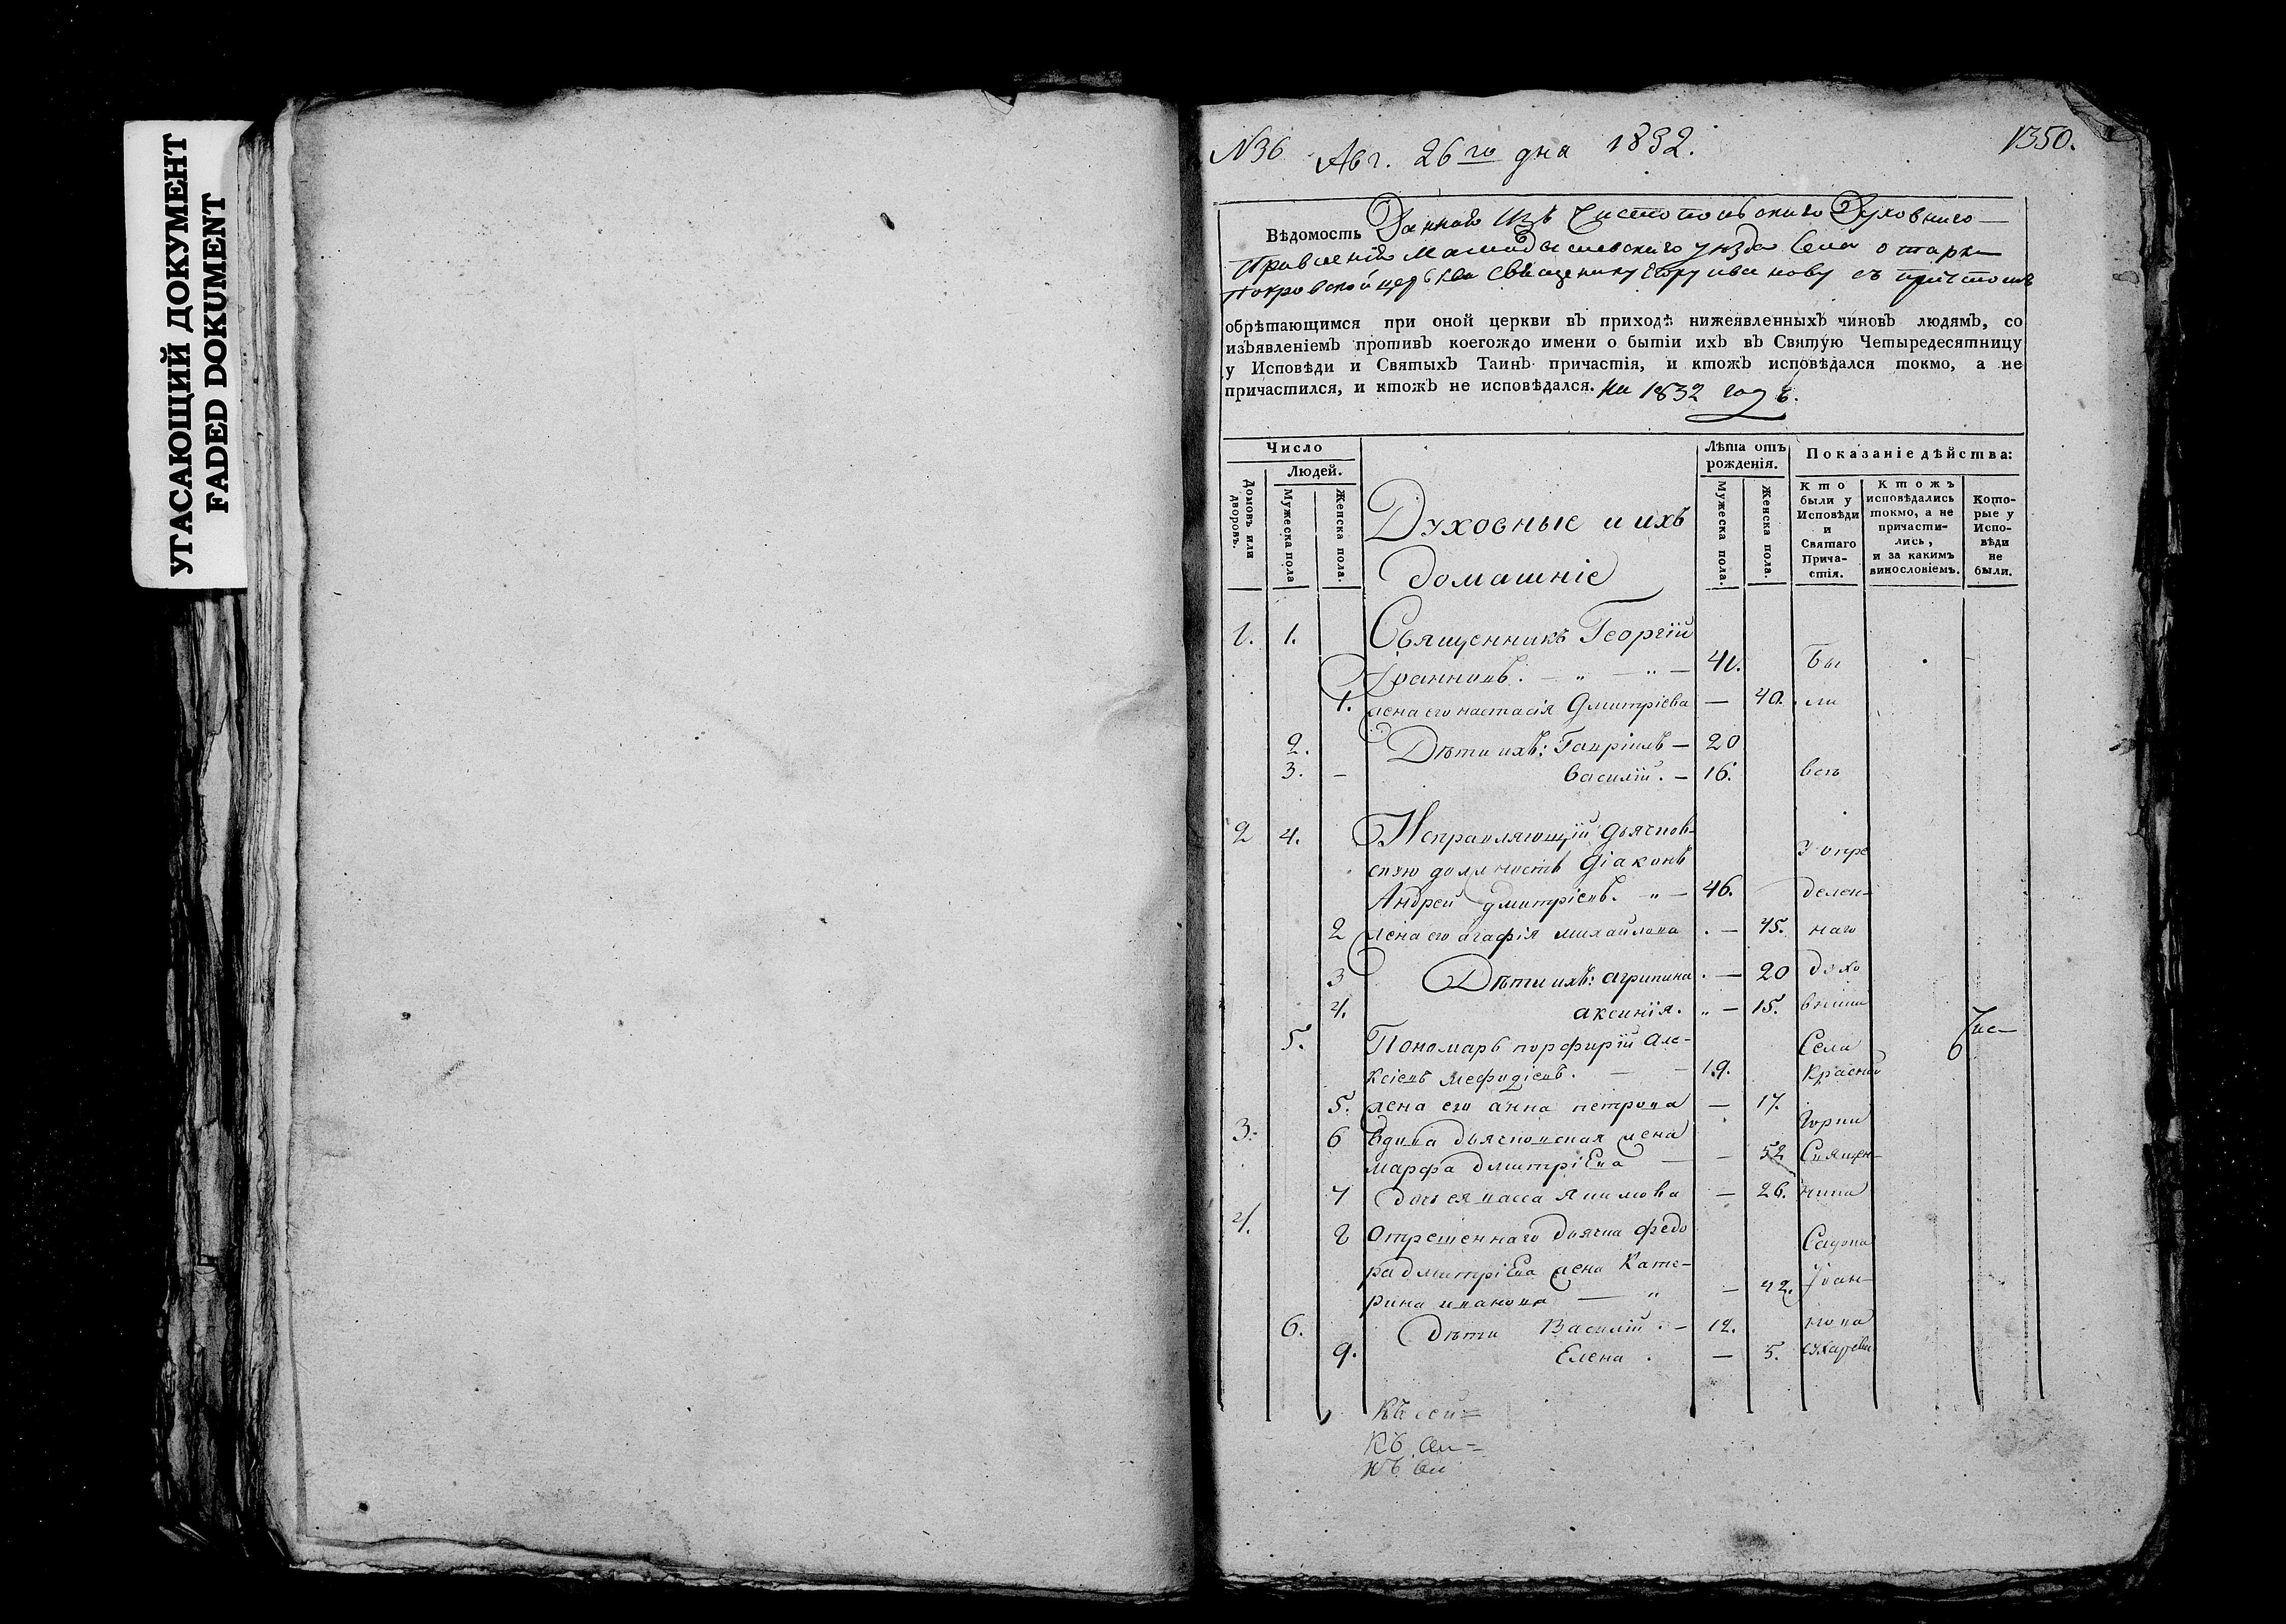 УГАСАЮЩИЙ ДОКУМЕНТ
FADED DOKUMENT
№36 Авг. 26го дня 1832. 1350.
Вѣдомость Данная изъ Чистопольскаго Духовнаго
Правленія Мамадышевскаго уѣзда Села отарки
Покровской церькви священнику Егору иванову съ причтомъ
обрѣтающимся при оной церкви въ приходѣ нижеявленныхъ чиновъ людямъ, со
изъявленіемъ противъ коегождо имени о бытіи ихъ въ Святую Четыредесятницу
у Исповѣди и Святыхъ Таинъ причастія, и ктожъ исповѣдался токмо, а не
причастился, и ктожъ не исповѣдался. на 1832 годъ.
Число
Людей.
Домовъ или дворовъ.
Мужеска пола
Женска пола.
Духовные и ихъ
домашніе
Лѣта отъ рожденія.
Мужеска пола.
Женска пола.
Показаніе дѣйства:
Кто были у Исповѣди и Святаго Прича-стія.
Ктожъ исповѣдались токмо, а не причасти-лись, и за какимъ винословіемъ.
Кото-рые у Испо-вѣди не были.
1. 1. Священникъ Георгій
Іоанновъ. 41. бы
1. жена его настасія Дмитріева — 40. ли
2. Дѣти ихъ: Гавріилъ — 20
3. — василій. — 16. всѣ
2 4. Исправляющій дьячков-
скую должность діаконъ у опре
Андрей дмитріевъ. — 46. делен-
2 жена его агафія михайлова . — 45. наго
3 Дѣти ихъ: агрипина . — 20 духо
4. аксинія. — 15. вника
5. Пономарь порфирій але- Села
ксіевъ мефодіевъ. — 19. Красной
5. жена его анна петрова — 17.
горки
3. 6 вдова дьячковская жена
марфа дмитріева — — 52 Священ-
7 дочь ея васса якимова — 26. ника
4. 8 Отрешеннаго дьячка федо
ра дмитріева жена Кате-
рина иванова — — 42. Іоан-
6. дѣти Василій. — 12. нова
9. Елена . — 5.